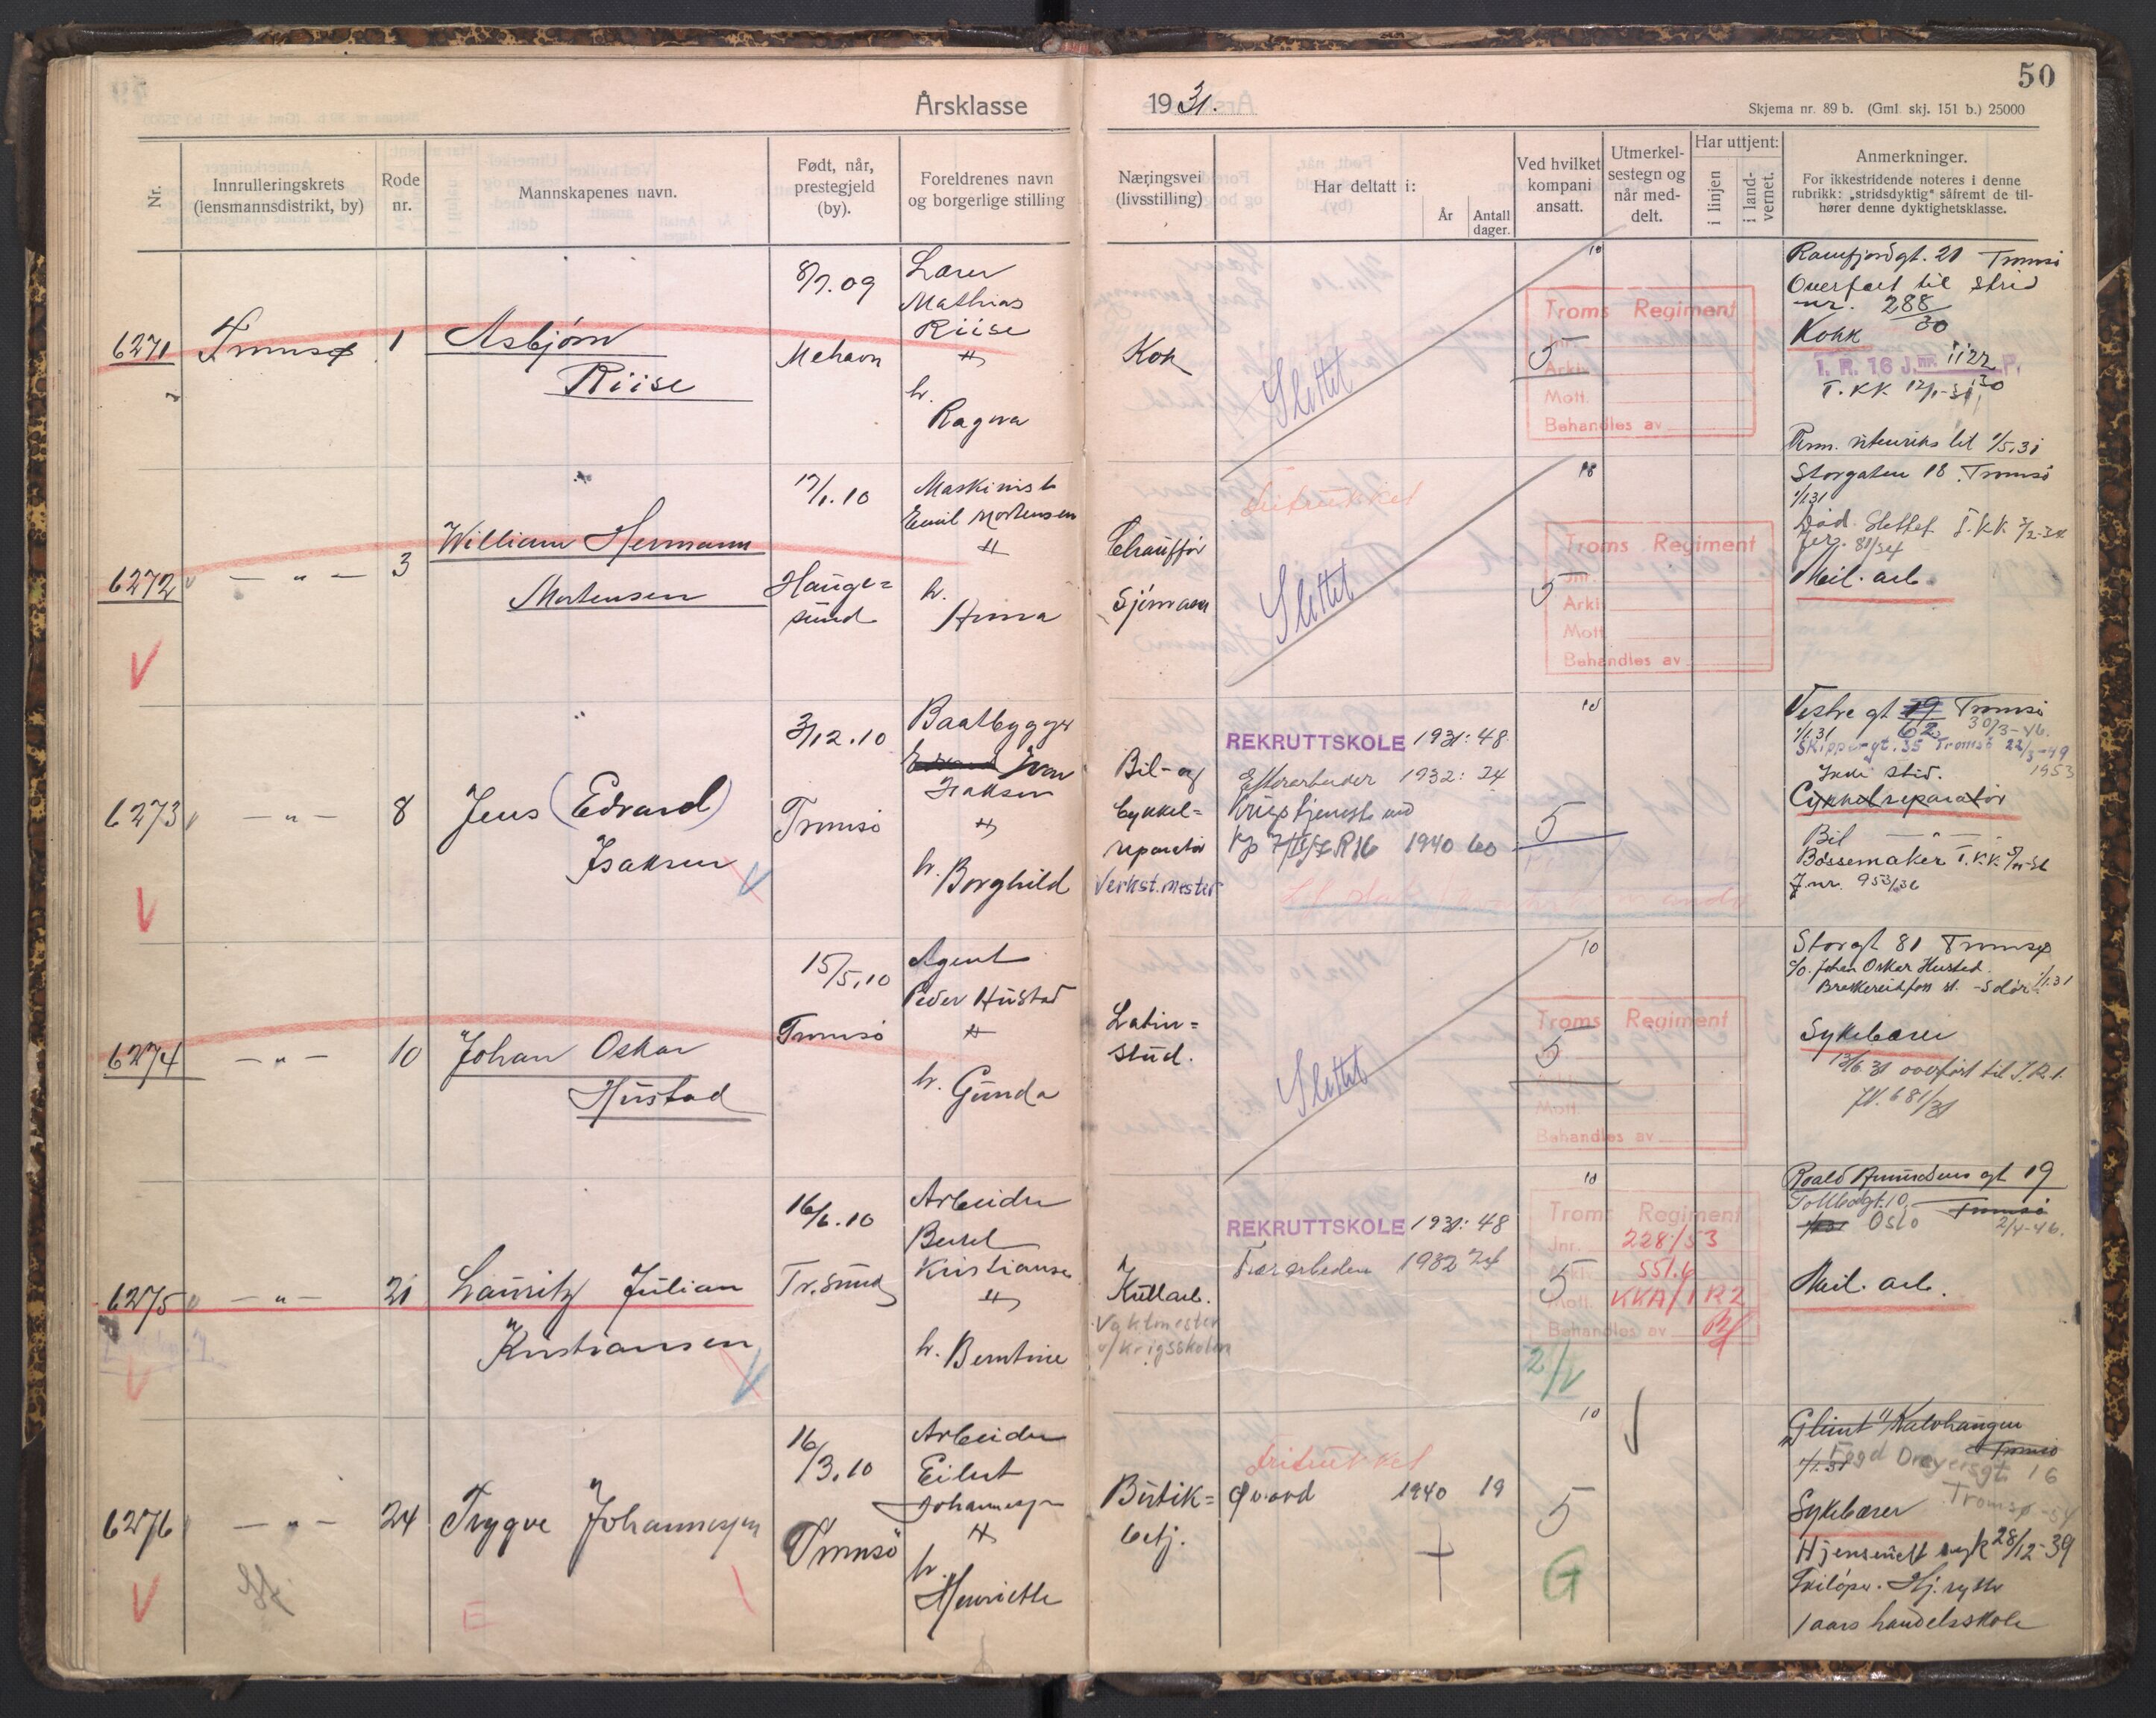 50
Årsklasse 1931.
Skjema nr. 89 b. (Gml. skj. 151 b.) 25000
Nr.
Innrulleringskrets
(lensmannsdistrikt, by)
Rode
nr.
Mannskapenes navn.
Født, når,
prestegjeld
(by).
Foreldrenes navn
og borgerlige stilling
Næringsvei
(livsstilling)
Har deltatt i:
År
Antall
dager.
Ved hvilket
kompani
ansatt.
Utmerkel-
sestegn og
når med-
delt.
Har uttjent:
i linjen
i land-
vernet.
Anmerkninger.
For ikkestridende noteres i denne
rubrikk: „stridsdyktig" såfremt de til-
hører denne dyktighetsklasse.
6271
Tromsø
1
Asbjørn
Riise
8/7.09
Mehavn
Mathias
Riise
h.
Ragna
Kok
Slettet
10
Troms Regiment
5
Arkiv
Mott.
Behandles av
Ramfjordgt. 21 Tromsö
Overfört til strid
nr. 288
30
Kokk
I. R. 16 J.nr. 1122 P.
T.KK. 12/1-31
Perm. utenriks til 1/5.31
6272
— „ —
3
William Hermann
Mortensen
17/1.10
Hauge=
sund
Maskinist
Emil Mortensen
h.
Anna
Chaufför
Sjömann
Fritruksket
Slettet
18
Troms Regiment
Jnr.
5
Arkiv
Mott.
Behandles av
Storgaten 18 Tromsö
1/1.31
Död. Slettet T.K.K. 3/2-34
Jnr. 81/34
Meil. arb.
6273
— „ —
8
Jens (Edvard)
Isaksen
3/12.10
Tromsö
Baatbygger
Edvard Ivar
Isaksen
h. Borghild
Bil- og
Cykkel=
reparatör
Verkst.mester
REKRUTTSKOLE 1931: 48
Efterarbeider 1932: 24
Krigstjeneste ved
1940 60
10
5
Vestre gt 19 Tromsö
1/1.31 62 30/3-46.
Skippergt. 35 Tromsö 22/3-49
1953
Ikke strid.
Cykkelreparatör
Bil — „ —
Bössemaker T.K.K.
J.nr. 953/36
6274
— „ —
10
Johan Oskar
Hustad
15/5.10
Tromsö
Agent
Peder Hustad
h. Gunda
Latin=
stud.
Slettet
10
Troms Regiment
5
Mott.
Behandles av
Storgt 81 Tromsö
c/o. Johan Oskar Hustad.
Braskereidfoss st. - Solör 1/1.31
Sykebærer
13/6.31 overfört til I.R.1.
JN. 681/31
6275
— „ —
21
Lauritz Julian
Kristiansen
16/6.10
Tr.sund
Arbeider
Kristiansen
h. Berntine
Kullarb.
Vaktmester
v/Krigsskolen
REKRUTTSKOLE 1931: 48
1932 24
10
Troms Regiment
Jnr. 228/53
551.4
5
Mott. KKA/1 R2
Behandles av
2/V
Roald Amundsens gt 19
Tollbodgt. 10, Tromsö
Oslo 2/4-46.
Meil. arb.
6276
— „ —
24
Trygve Johannessen
E
16/3.10
Tromsö
Arbeider
Eilert
Johannessen
h.
Henriette
Butik=
betj.
Fritrukket
Nvord 1940 19
10
5
G
„Glimt" Kulvhaugen
Tromsö
1/1.31 Fogd Dreyersgt. 16
Tromsø -54
Sykebærer
Hjemsendt syk 28/12-39
Skilöper. Hj. rytter
1 aars handelsskole